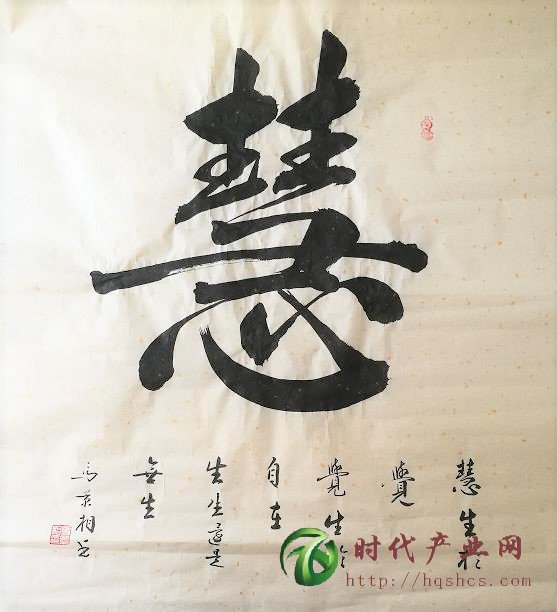 慧
慧生於
覺
覺生於
自在
生生還是
無生
马景相书
时代产业网
http://hqshcs.com